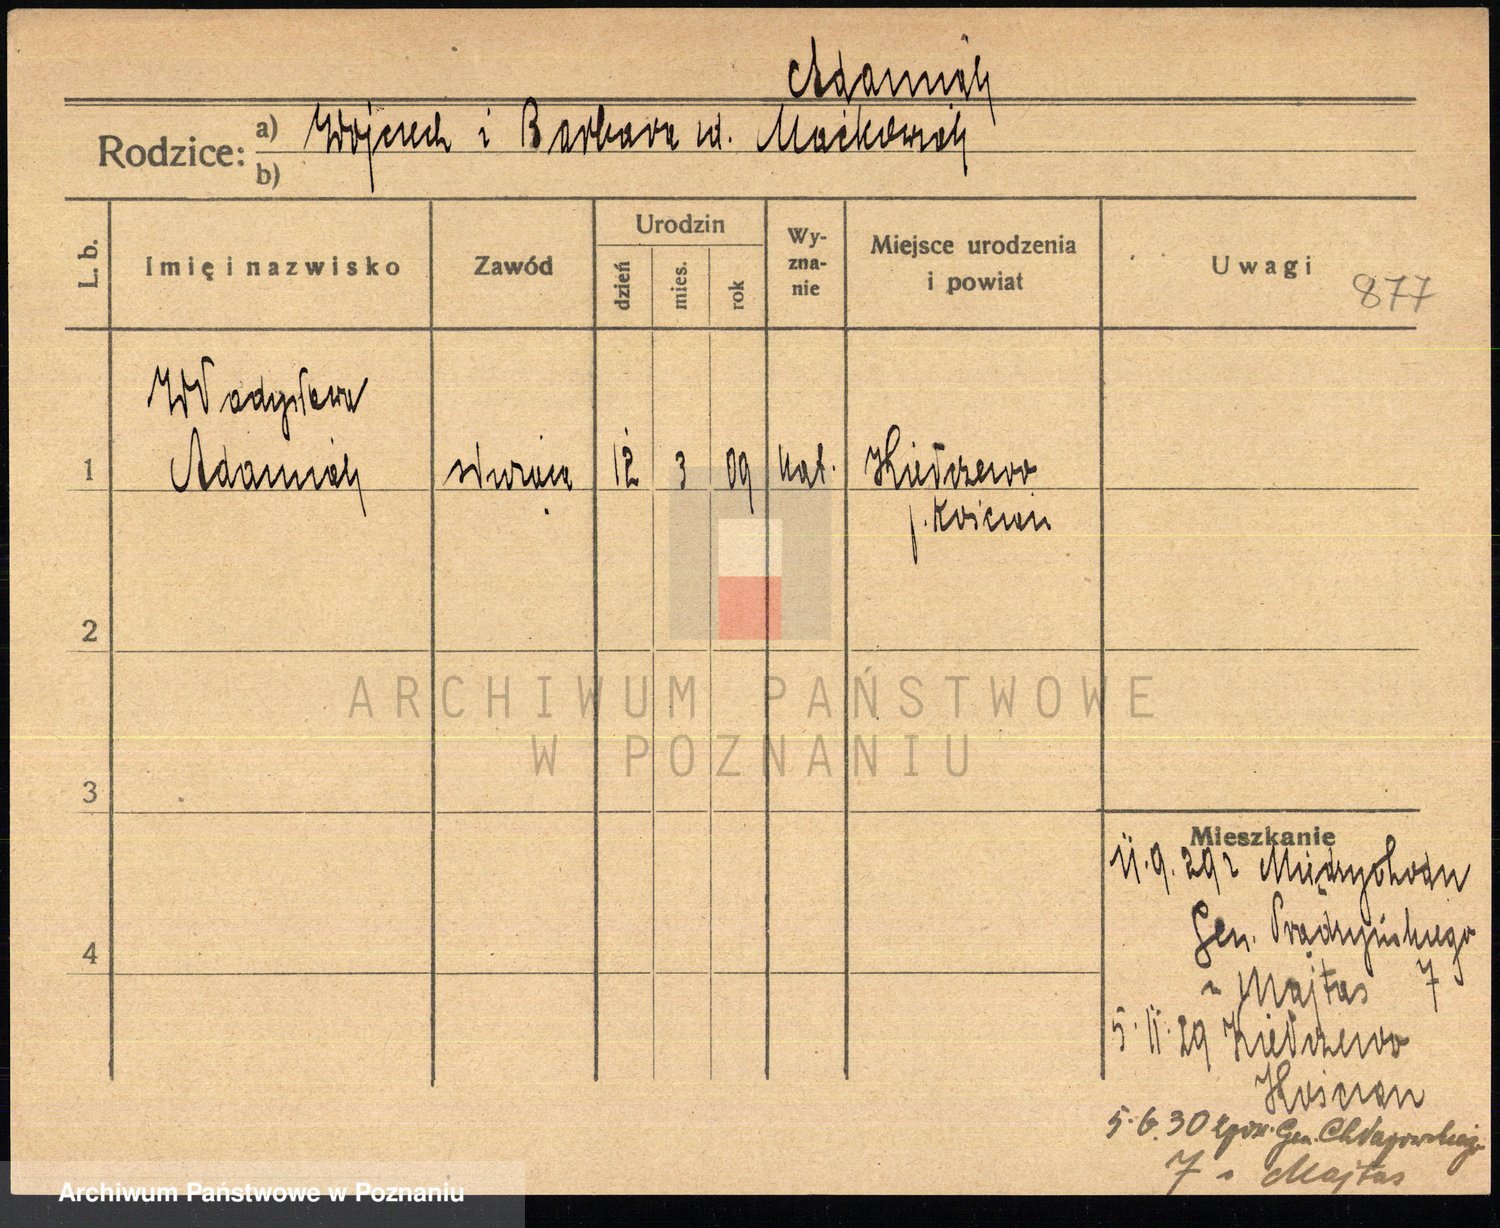 Adamiak
Rodzice: a) Wojciech i Barbara ur. Maćkowiak
b)
L. b.
Imię i nazwisko
Zawód
Urodzin
dzień
mies.
rok
Wy-
zna-
nie
Miejsce urodzenia
i powiat
Uwagi
877
Władysława
1 Adamiak służąca 12 3 09 kat. Kiełczewo
p. Kościan
2
ARCHIWUM PAŃSTWOWE
W POZNANIU
3
Mieszkanie
11.9.29 z Międzychodu
Gen. Prądzyńskiego
u Majtas 7
4
5.11.29 Kiełczewo
Kościan
5.6.30 Gen. Chłapowskiego
7 u Majtas
Archiwum Państwowe w Poznaniu